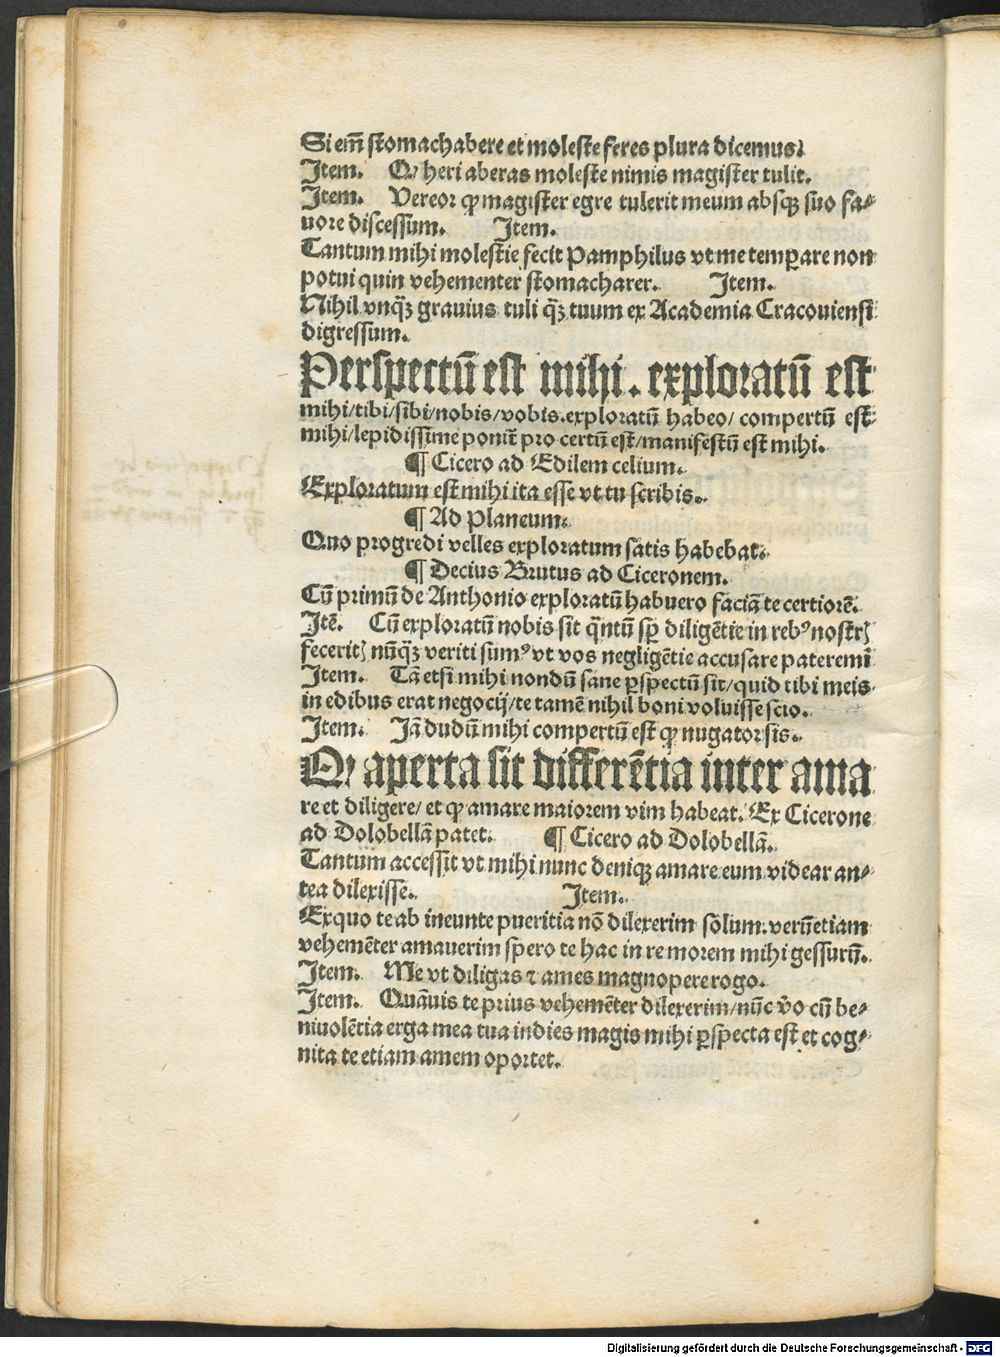 Si em̄ stomachabere et moleste feres plura dicemus.
Item. Qꝫ heri aberas moleste nimis magister tulit.
Item. Vereor ꝙ magister egre tulerit meum absqꝫ suo fa⸗
uore discessum. Item.
Tantum mihi molestie fecit Pamphilus vt me temꝑare non
potui quin vehementer stomacharer. Item.
Nihil vnq̄ꝫ grauius tuli q̄ꝫ tuum ex Academia Cracouiensi
digressum.
Perspectū est mihi. exploratū est
mihi/tibi/sibi/nobis/vobis.exploratū habeo/ compertū est
mihi/lepidissime ponit̄ pro certū est/manifestū est mihi.
¶ Cicero ad Edilem celium.
Exploratum est mihi ita esse vt tu scribis.
¶ Ad Planeum.
Quo progredi velles exploratum satis habebat.
¶ Decius Brutus ad Ciceronem.
Cū primū de Anthonio exploratū habuero faciā te certiorē.
Itē. Cū exploratū nobis sit q̄ntū sꝑ diligētie in rebꝰ nostrꝭ
feceritꝭ nūq̄ꝫ veriti sumꝰ vt vos negligētie accusare pateremī
Item. Tā etsi mihi nondū sane ꝑspectū sit/quid tibi meis
in edibus erat negocij/te tamē nihil boni voluisse scio.
Item. Iā dudū mihi compertū est ꝙ nugator sis.
Qꝫ aperta sit differētia inter ama
re et diligere/ et ꝙ amare maiorem vim habeat. Ex Cicerone
ad Dolobellā patet. ¶ Cicero ad Dolobellā.
Tantum accessit vt mihi nunc deniqꝫ amare eum videar an⸗
tea dilexisse. Item.
Exquo te ab ineunte pueritia nō dilexerim solum. verūetiam
vehemēter amauerim spero te hac in re morem mihi gessurū.
Item. Me vt diligas ⁊ ames magnopere rogo.
Item. Quāuis te prius vehemēter dilexerim/nūc v̄o cū be⸗
niuolētia erga mea tua indies magis mihi ꝑspecta est et cog⸗
nita te etiam amem oportet.
Digitalisierung gefördert durch die Deutsche Forschungsgemeinschaft - DFG